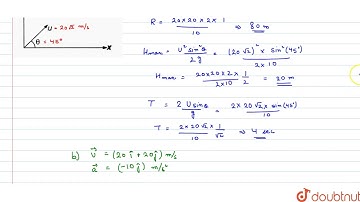 U = 20√2 m/s
θ = 45°
X
R = 20 × 20 × 2 × 1 / 10 ⇒ 80 m
Hmax = U² sin²θ / 2g = (20√2)² × sin²(45°) / 2 × 10
Hmax = 20×20×2 / 2×10 × 1/2 = 20 m
T = 2 U sinθ / g = 2× 20√2 × sin(45°) / 10
T = 2 × 20√2 × 1/√2 / 10 ⇒ 4 sec
b) v⃗ = (20 î + 20 ĵ) m/s
a⃗ = (-10 ĵ) m/s²
doubtnut